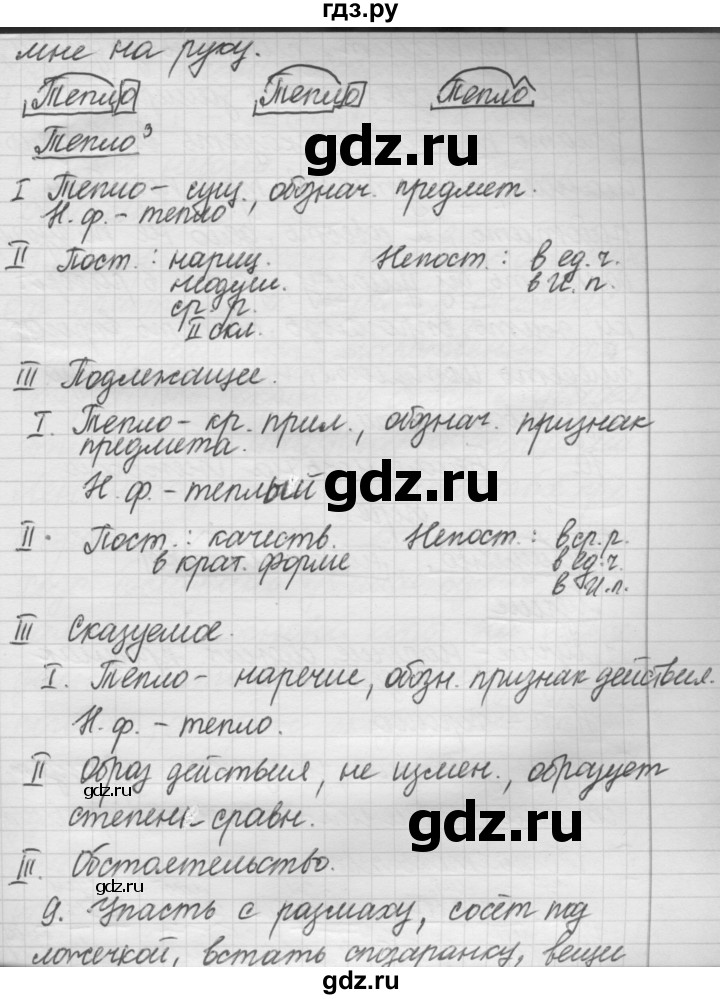 гдз.ру
мне на руку.
Тепло Тепло Тепло
Тепло³
gdz.ru
I Тепло - сущ., обознач. предмет.
Н. ф. - тепло
II Пост.: нариц. Непост.: в ед. ч.
неодуш. в И. п.
ср. р.
II скл.
III Подлежащее.
I. Тепло - кр. прил., обознач. признак
предмета.
Н. ф. - теплый
gdz.ru
II. Пост.: качеств. Непост.: в ср. р.
в крат. форме в ед. ч.
в И. п.
III Сказуемое.
I. Тепло - наречие, обозн. признак действия.
Н. ф. - тепло.
II Образ действия, не измен., образует
gdz.ru
степени сравн.
gdz.ru
III. Обстоятельство.
gdz.ru
9. Упасть с размаху, сосёт под
ложечкой, встать спозаранку, вещи
gdz.ru